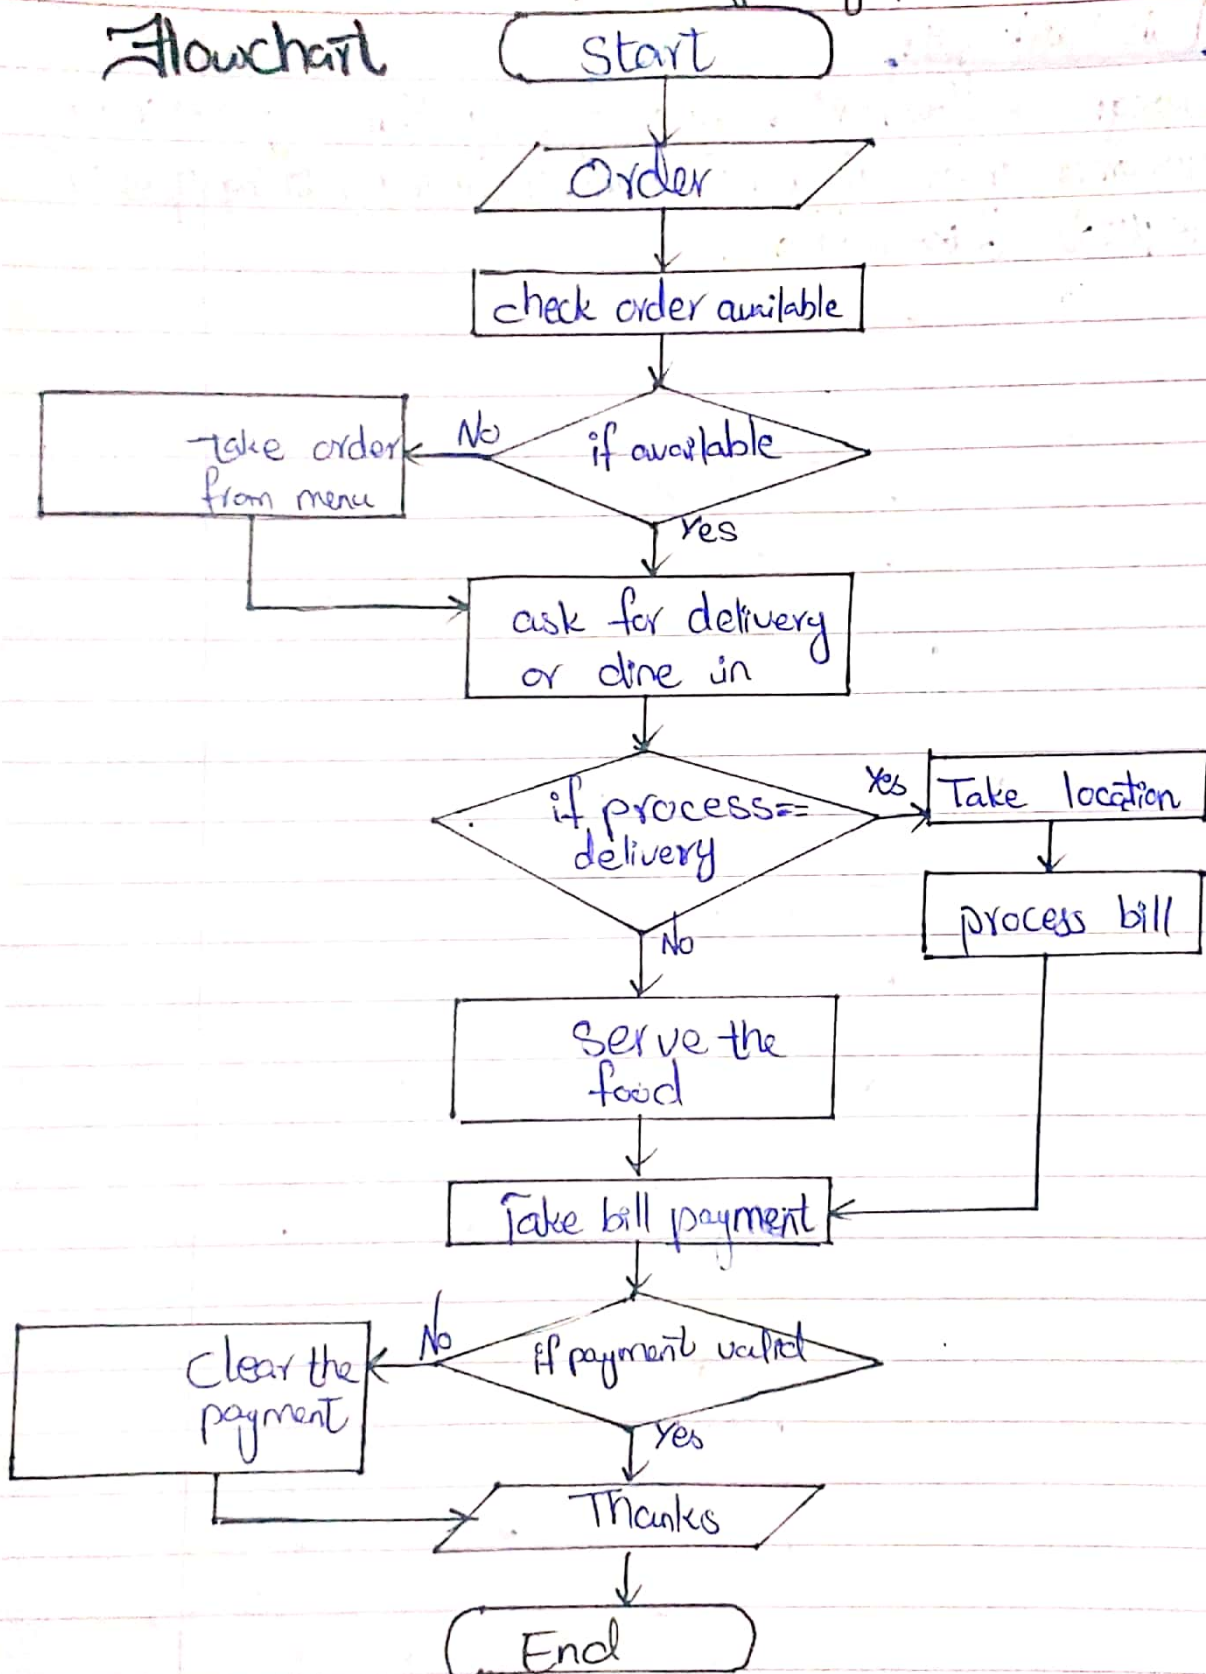 Flowchart
Start
Order
check order available
if available
No
Take order
from menu
Yes
ask for delivery
or dine in
if process==
delivery
Yes
Take location
process bill
No
Serve the
food
Take bill payment
if payment valid
No
Clear the
payment
Yes
Thanks
End